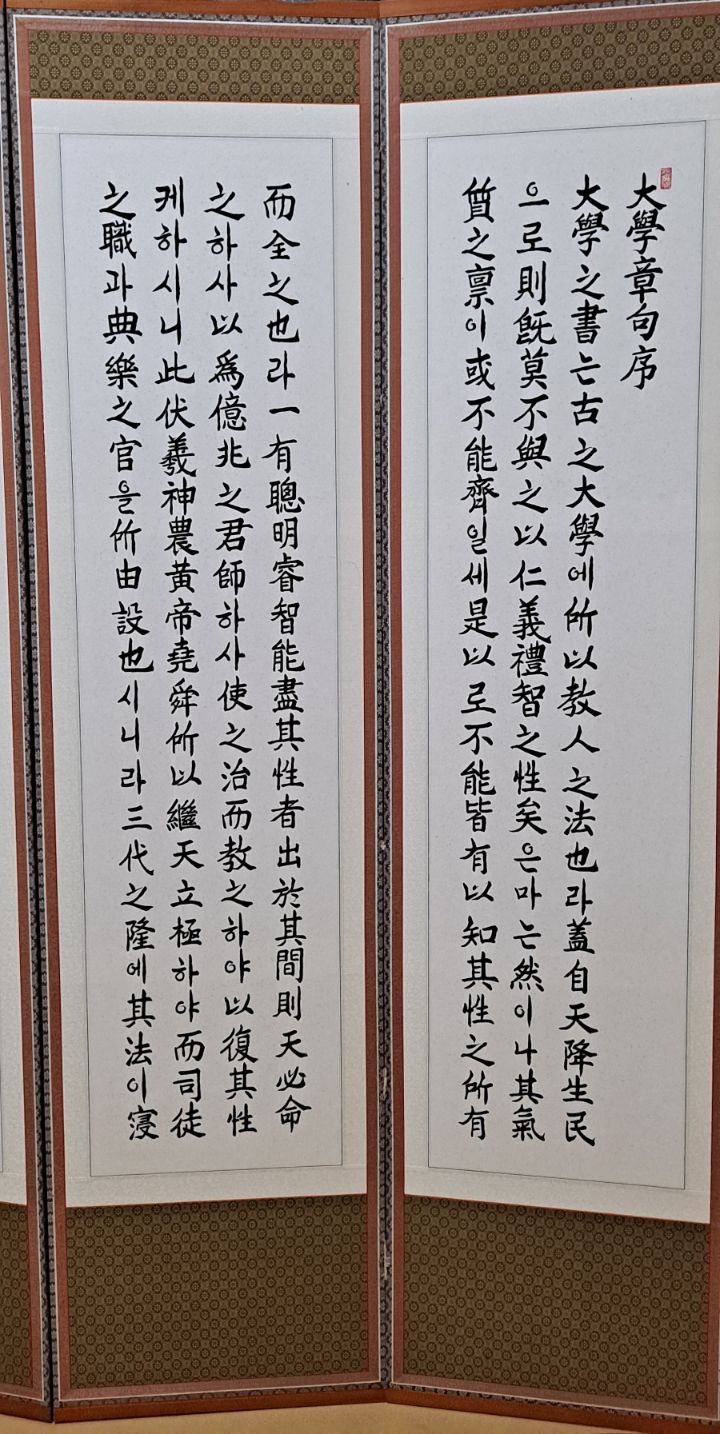 大學章句序
大學之書는古之大學에所以教人之法也라蓋自天降生民
으로則旣莫不與之以仁義禮智之性矣은마는然이나其氣
質之禀이或不能齊일세是以로不能皆有以知其性之所有
而全之也라一有聰明睿智能盡其性者出於其間則天必命
之하사以爲億兆之君師하사使之治而教之하야以復其性
케하시니此伏羲神農黃帝堯舜所以繼天立極하야而司徒
之職과典樂之官을所由設也시니라三代之隆에其法이寖